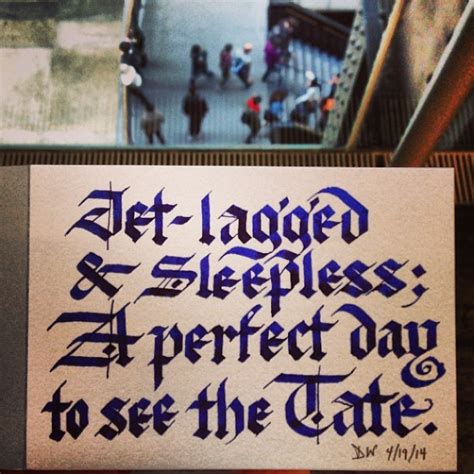 Jet-lagged
& Sleepless;
A perfect day
to see the Tate.
DW 4/19/14